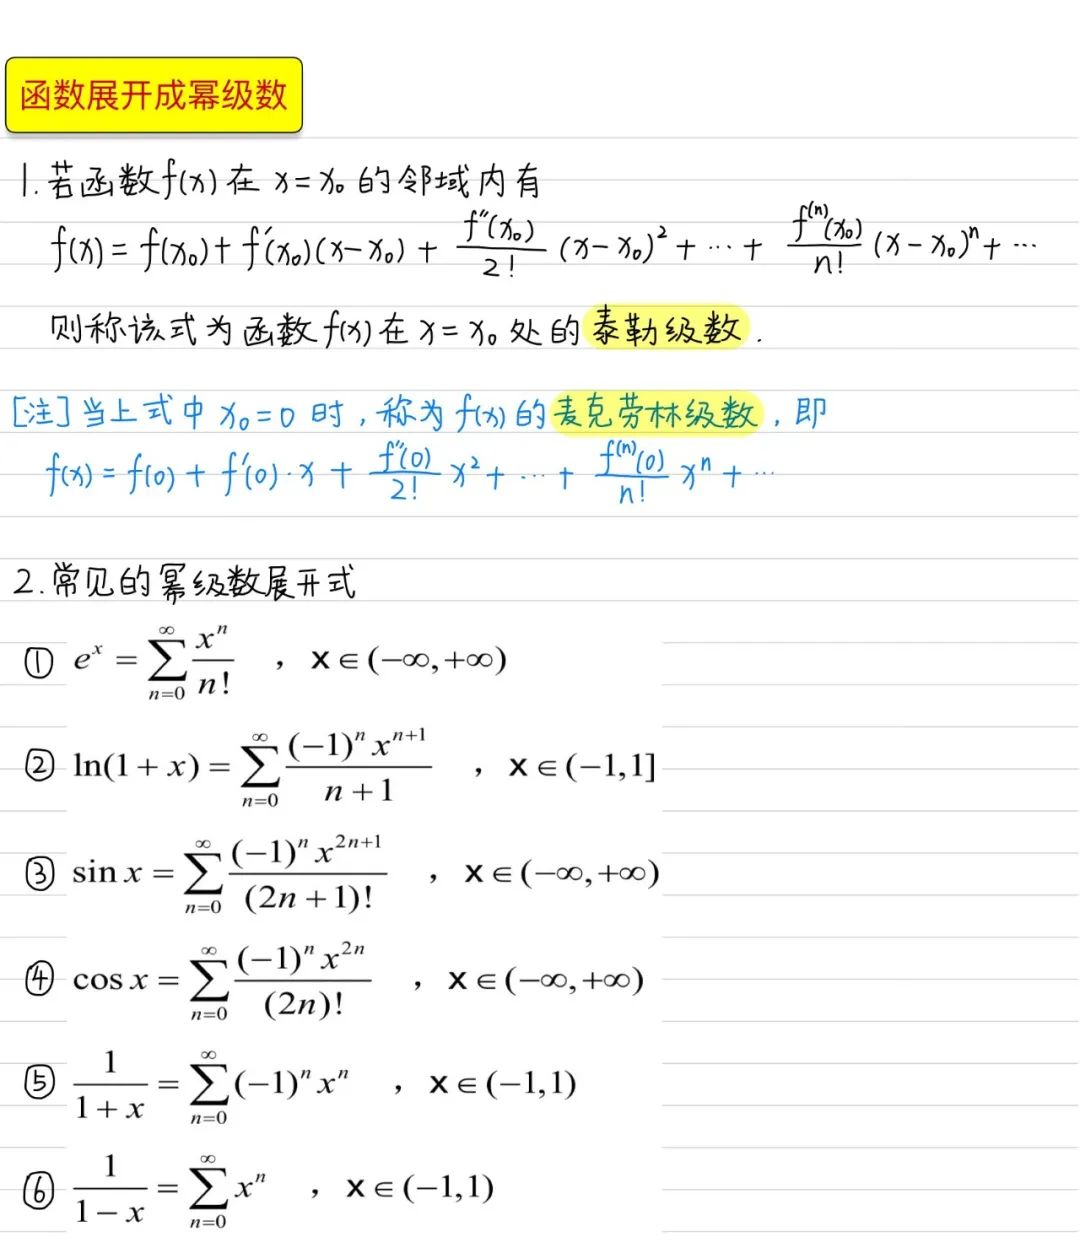 函数展开成幂级数
1.若函数f(x)在 x=x₀ 的邻域内有
f(x) = f(x₀) + f′(x₀)(x−x₀) + f″(x₀)/2! (x−x₀)² + ⋯ + f⁽ⁿ⁾(x₀)/n! (x−x₀)ⁿ + ⋯
则称该式为函数f(x)在 x=x₀ 处的泰勒级数.
[注]当上式中 x₀=0 时,称为 f(x) 的麦克劳林级数,即
f(x) = f(0) + f′(0)·x + f″(0)/2! x² + ⋯ + f⁽ⁿ⁾(0)/n! xⁿ + ⋯
2.常见的幂级数展开式
① eˣ = ∑_{n=0}^{∞} xⁿ/n! , x∈(−∞,+∞)
② ln(1+x) = ∑_{n=0}^{∞} (−1)ⁿxⁿ⁺¹/(n+1) , x∈(−1,1]
③ sin x = ∑_{n=0}^{∞} (−1)ⁿx²ⁿ⁺¹/(2n+1)! , x∈(−∞,+∞)
④ cos x = ∑_{n=0}^{∞} (−1)ⁿx²ⁿ/(2n)! , x∈(−∞,+∞)
⑤ 1/(1+x) = ∑_{n=0}^{∞} (−1)ⁿxⁿ , x∈(−1,1)
⑥ 1/(1−x) = ∑_{n=0}^{∞} xⁿ , x∈(−1,1)